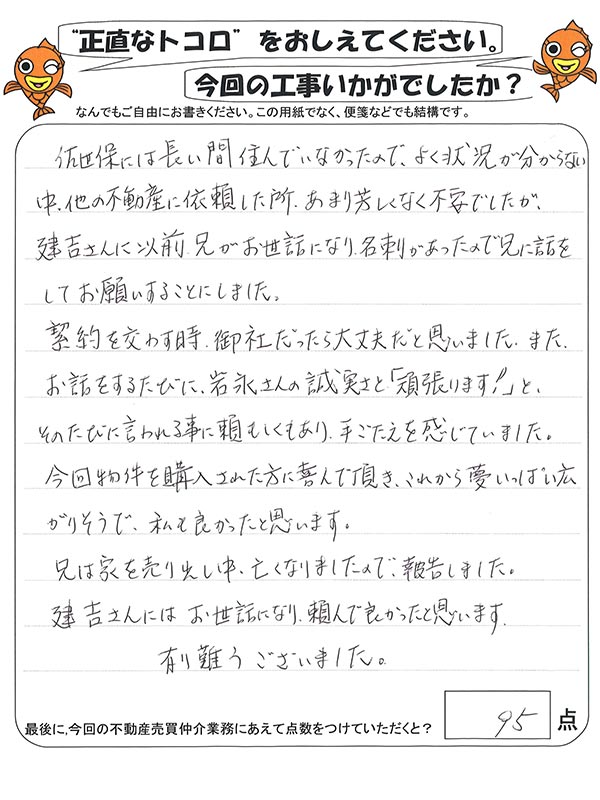 “正直なトコロ”をおしえてください。
今回の工事いかがでしたか？
なんでもご自由にお書きください。この用紙でなく、便箋などでも結構です。
佐世保には長い間住んでいなかったので、よく状況が分からない
中、他の不動産に依頼した所、あまり芳しくなく不安でしたが、
建吉さんに以前、兄がお世話になり、名刺があったので兄に話を
してお願いすることにしました。
契約を交わす時、御社だったら大丈夫だと思いました。また、
お話をするたびに、岩永さんの誠実さと「頑張ります！」と、
そのたびに言われる事に頼もしくもあり、手ごたえを感じていました。
今回物件を購入された方に喜んで頂き、これから夢いっぱい広
がりそうで、私も良かったと思います。
兄は家を売り出し中、亡くなりましたので、報告しました。
建吉さんにはお世話になり、頼んで良かったと思います。
有り難うございました。
最後に、今回の不動産売買仲介業務にあえて点数をつけていただくと？
95点